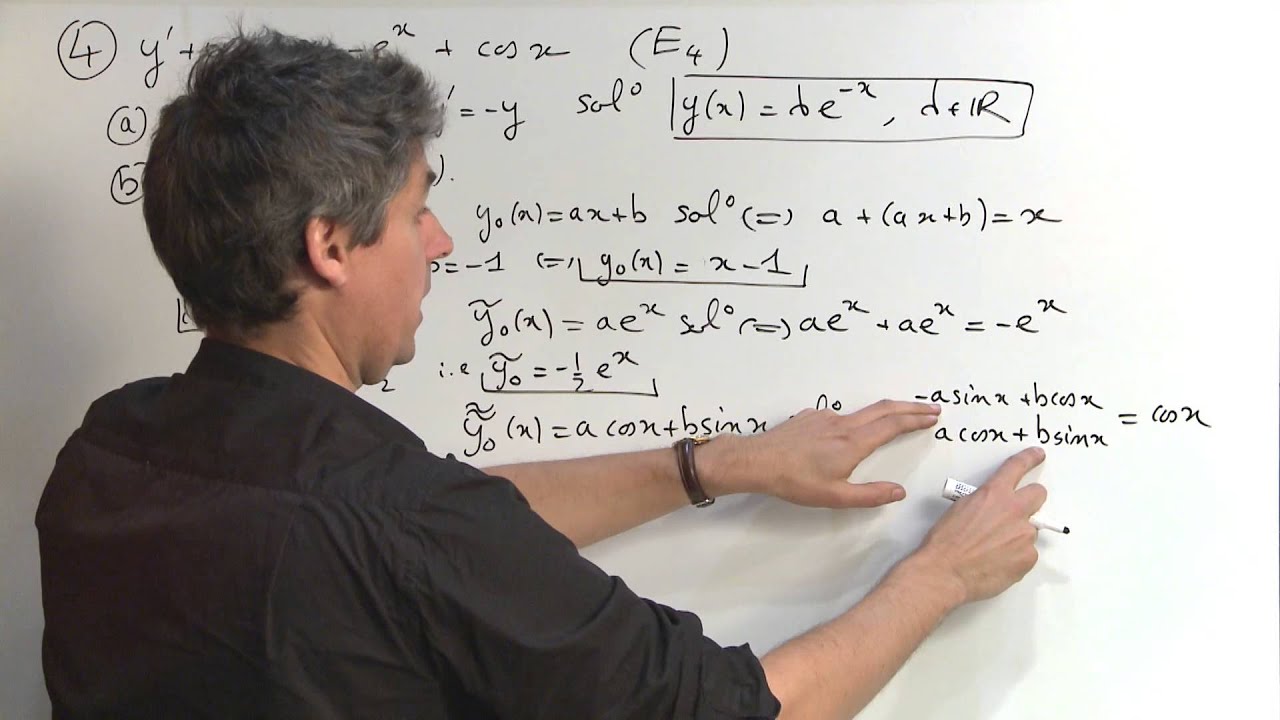 ④ y' + - e^x + cos x (E₄)
ⓐ y' = -y sol° y(x) = λe^{-x}, λ ∈ ℝ
ⓑ ).
y₀(x) = ax+b sol° ⟺ a + (ax+b) = x
= -1 ⟺ y₀(x) = x - 1
ỹ₀(x) = ae^x sol° ⟺ ae^x + ae^x = -e^x
2 i.e ỹ₀ = -1/2 e^x
ỹ̃₀(x) = a cosx + b sinx -a sinx + b cosx + a cosx + b sinx = cosx